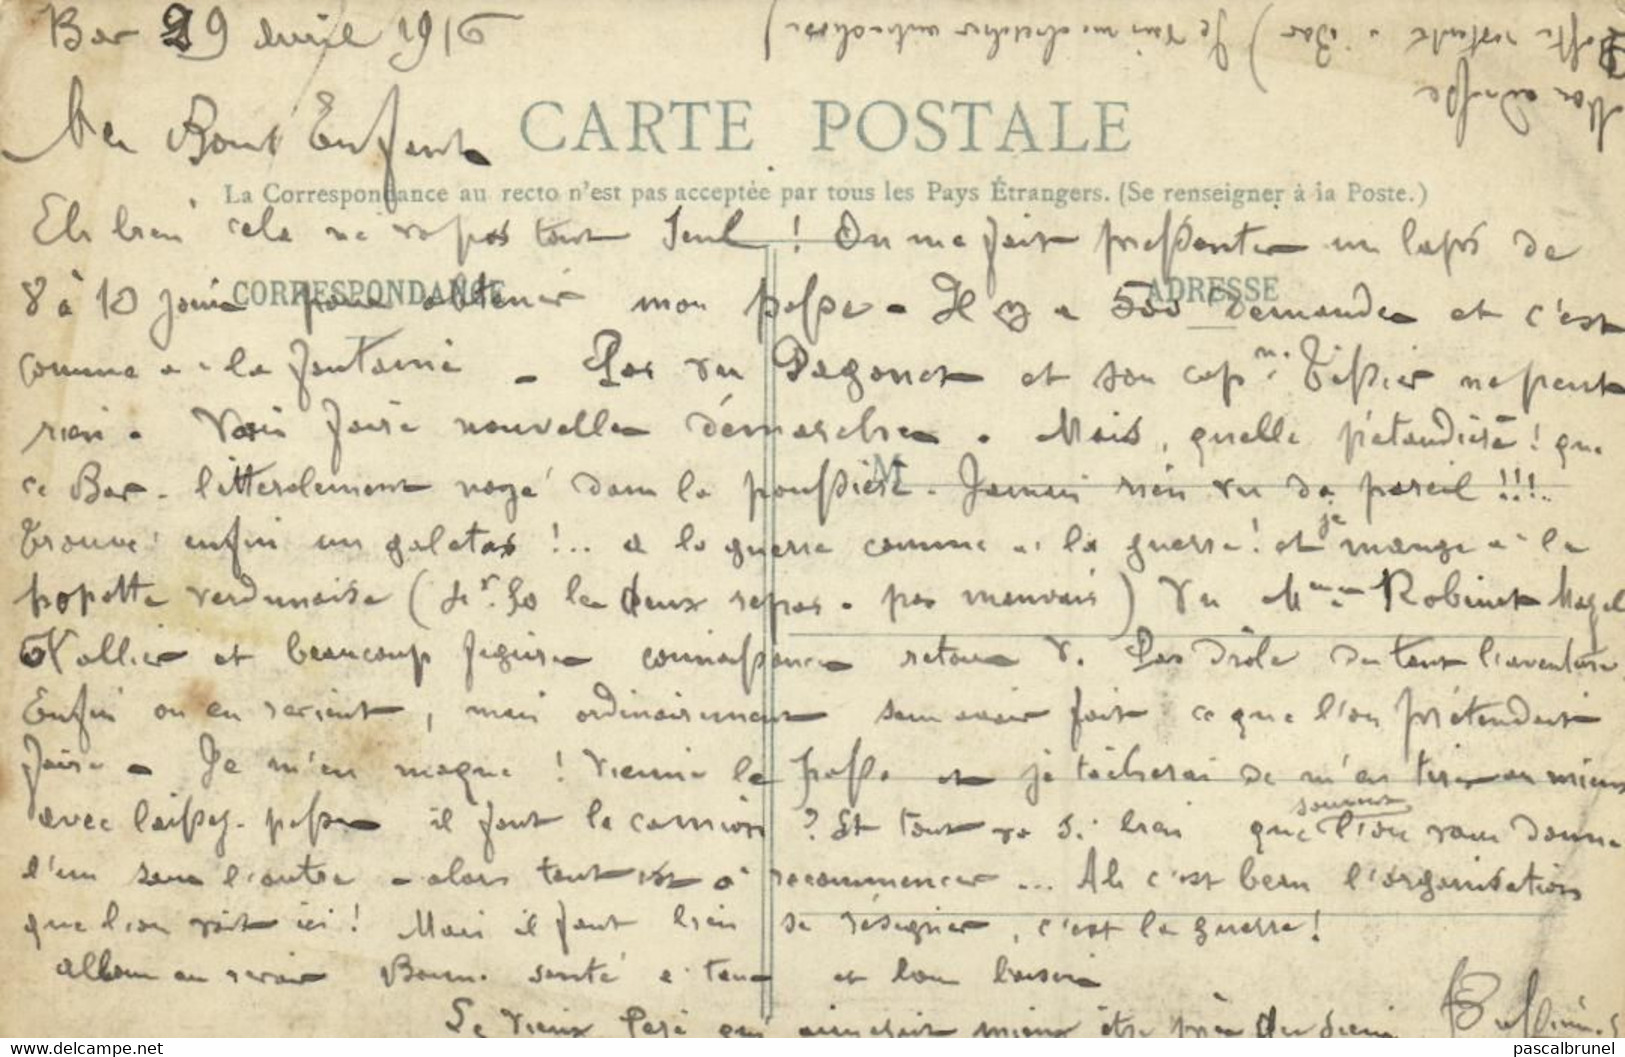 Bar 29 avril 1916
Mes Bons Enfants
CARTE POSTALE
La Correspondance au recto n'est pas acceptée par tous les Pays Étrangers. (Se renseigner à la Poste.)
CORRESPONDANCE
ADRESSE
M
Eh bien cela ne va pas tout seul ! On me fait pressentir un laps de
8 à 10 jours pour obtenir mon passe - Il y a 500 demandes et c'est
comme à la fontaine - Pas vu Pagonet et son cap.ne Tissier ne peut
rien - Vais faire nouvelles démarches. Mais, quelle pétaudière ! que
ce Bar - littéralement noyé dans la poussière - Jamais rien vu de pareil !!!..
Trouvé enfin un galetas !... à la guerre comme à la guerre ! et je mange à la
popotte verdunoise (4f.50 les deux repas - pas mauvais) Vu Mme Robinet
et beaucoup figures connaissances retour V. Pas drôle du tout l'aventure
Enfin on en revient, mais ordinairement sans avoir fait ce que l'on prétendait
faire - Je m'en moque ! Vienne le passe et je tâcherai de m'en tirer au mieux
avec laissez-passer il faut le camion ? Et tout va si bien que souvent l'on vous donne
l'un sans l'autre - alors tout est à recommencer... Ah c'est beau l'organisation
que l'on voit ici ! Mais il faut bien se résigner, c'est la guerre !
Allons au revoir Bonne santé à tous et bon baiser
Le vieux Père qui aimerait mieux être près des siens
Mon adresse
Poste restante à Bar (Je vais me chercher autre chose)
pascalbrunel